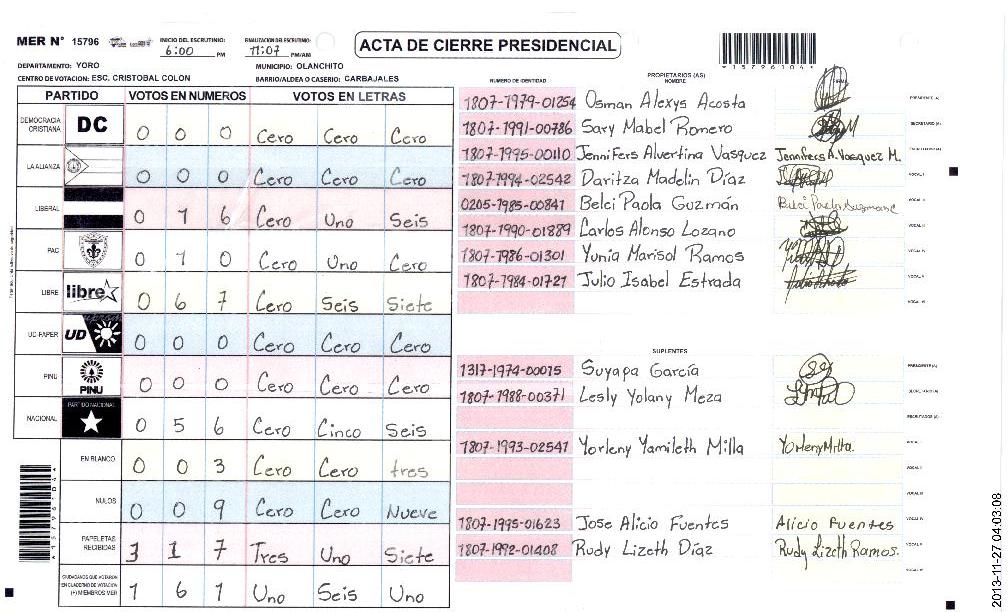 MER N° 15796
INICIO DEL ESCRUTINIO: 6:00 PM
FINALIZACIÓN DEL ESCRUTINIO: 11:07 PM/AM
ACTA DE CIERRE PRESIDENCIAL
*15796104*
DEPARTAMENTO: YORO
MUNICIPIO: OLANCHITO
CENTRO DE VOTACION: ESC. CRISTOBAL COLON
BARRIO/ALDEA O CASERIO: CARBAJALES
PARTIDO VOTOS EN NUMEROS VOTOS EN LETRAS
DEMOCRACIA CRISTIANA DC 0 0 0 Cero Cero Cero
LA ALIANZA 0 0 0 Cero Cero Cero
LIBERAL 0 1 6 Cero Uno Seis
PAC 0 1 0 Cero Uno Cero
LIBRE libre 0 6 7 Cero Seis Siete
UD-FAPER UD 0 0 0 Cero Cero Cero
PINU PINU 0 0 0 Cero Cero Cero
NACIONAL PARTIDO NACIONAL 0 5 6 Cero Cinco Seis
EN BLANCO 0 0 3 Cero Cero tres
NULOS 0 0 9 Cero Cero Nueve
PAPELETAS RECIBIDAS 3 1 7 Tres Uno Siete
CIUDADANOS QUE VOTARON EN CUADERNO DE VOTACION (+) MIEMBROS MER 1 6 1 Uno Seis Uno
NUMERO DE IDENTIDAD PROPIETARIOS (AS) NOMBRE FIRMA
1807-1979-01254 Osman Alexys Acosta PRESIDENTE (A)
1807-1991-00786 Sary Mabel Romero SECRETARIO (A)
1807-1995-00110 Jennifers Alvertina Vasquez Jennifers A. Vasquez M. ESCRUTADOR (A)
1807-1994-02542 Daritza Madelin Díaz VOCAL I
0205-1985-00841 Belci Paola Guzmán Belci Paola Guzman VOCAL II
1807-1990-01889 Carlos Alonso Lozano VOCAL III
1807-1986-01301 Yunia Marisol Ramos VOCAL IV
1807-1984-01727 Julio Isabel Estrada VOCAL V
VOCAL VI
SUPLENTES
1317-1974-00075 Suyapa García PRESIDENTE (A)
1807-1988-00371 Lesly Yolany Meza SECRETARIO (A)
ESCRUTADOR (A)
1807-1993-02547 Yorleny Yamileth Milla Yorleny Milla. VOCAL I
VOCAL II
VOCAL III
1807-1995-01623 Jose Alicio Fuentes Alicio Fuentes VOCAL IV
1807-1992-01408 Rudy Lizeth Díaz Rudy Lizeth Ramos. VOCAL V
VOCAL VI
*15796104*
2013-11-27 04:03:08